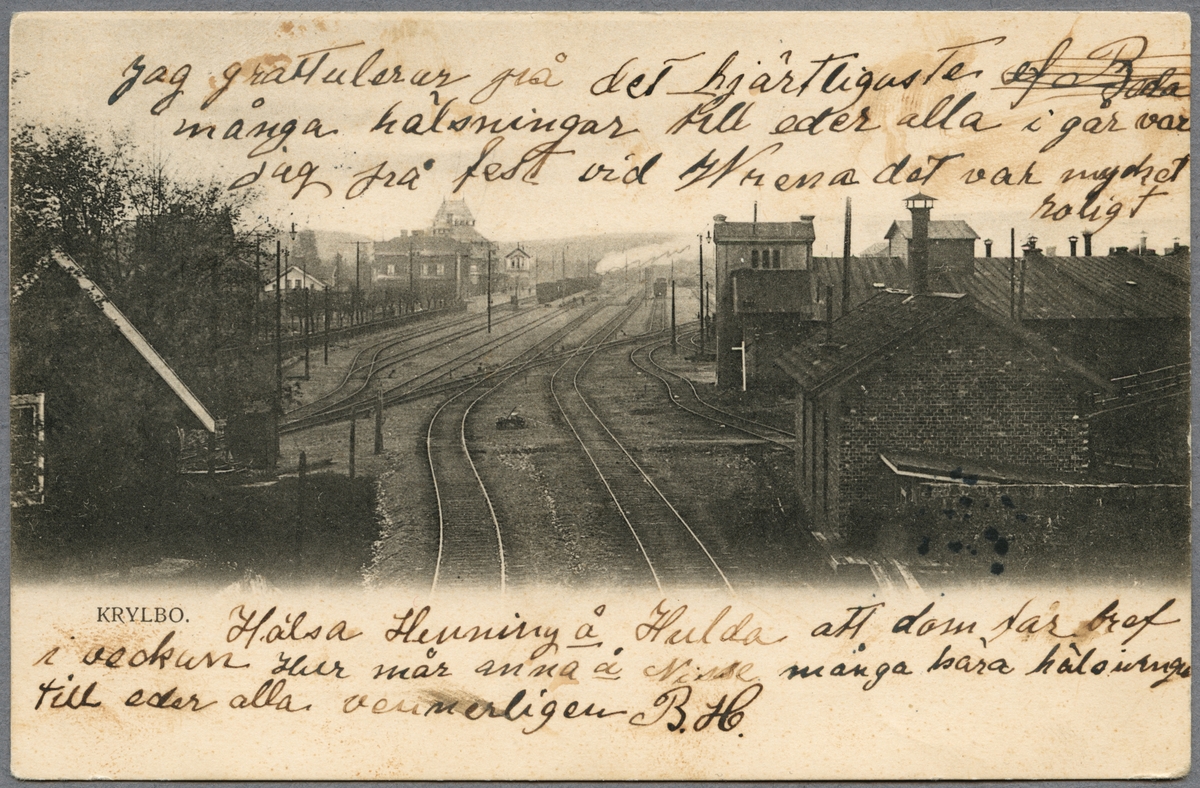 Jag grattulerar på det hjärtligaste
många hälsningar till eder alla i går var
jag på fest vid Wrena det var mycket
roligt
KRYLBO.
Hälsa Henning å Hulda att dom får bref
i veckan Hur mår anna å Nisse många kära hälsningar
till eder alla vennerligen B.H.